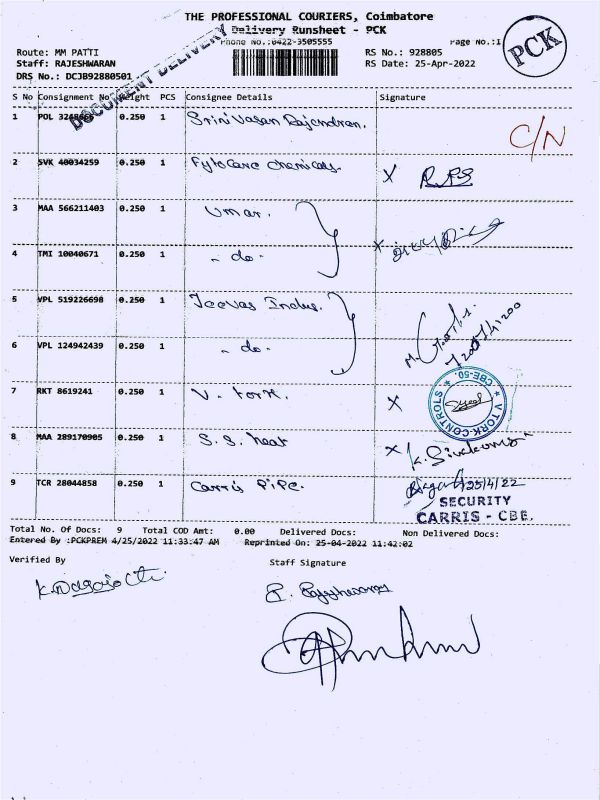 THE PROFESSIONAL COURIERS, Coimbatore
Delivery Runsheet - PCK
Phone No.:0422-3505555
Page No.:1
PCK
Route: MM PATTI
RS No.: 928805
Staff: RAJESHWARAN
RS Date: 25-Apr-2022
DRS No.: DCJB92880501
DOCUMENT DELIVERY
S No Consignment No Weight PCS Consignee Details Signature
1 POL 0.250 1 Srinivasan Rajendran. C/N
2 SVK 40034259 0.250 1 Fytocare chemicals. X RPS
3 MAA 566211403 0.250 1 Umar.
4 TMI 10040671 0.250 1 - do - X
5 VPL 519226698 0.250 1 Jeevas Indus.
6 VPL 124942439 0.250 1 - do -
7 RKT 8619241 0.250 1 V. tork. X
V TORK-CONTROLS * CBE-50. *
8 MAA 289170905 0.250 1 S. S. heat X
9 TCR 28044858 0.250 1 Carris Pipe. 25/4/22
SECURITY
CARRIS - CBE.
Total No. Of Docs: 9 Total COD Amt: 0.00 Delivered Docs: Non Delivered Docs:
Entered By :PCKPREM 4/25/2022 11:33:47 AM Reprinted On: 25-04-2022 11:42:02
Verified By Staff Signature